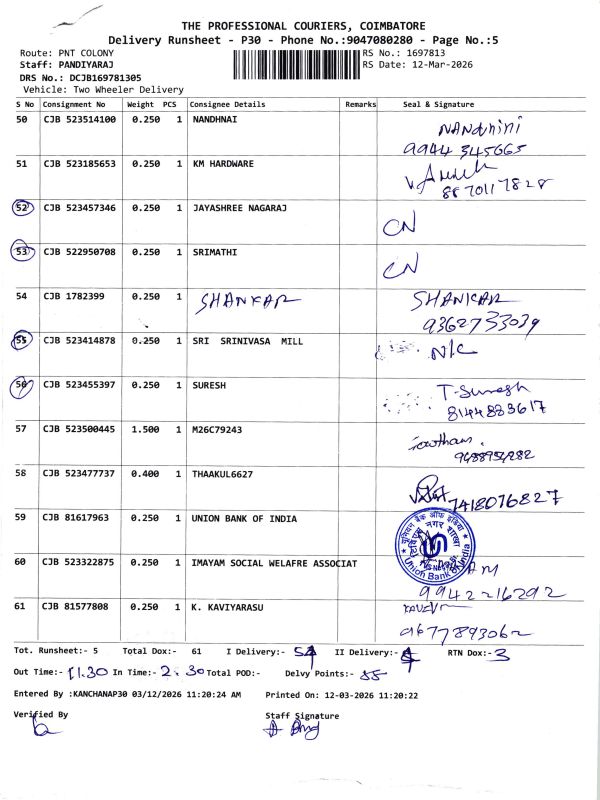 THE PROFESSIONAL COURIERS, COIMBATORE
Delivery Runsheet - P30 - Phone No.:9047080280 - Page No.:5
Route: PNT COLONY RS No.: 1697813
Staff: PANDIYARAJ RS Date: 12-Mar-2026
DRS No.: DCJB169781305
Vehicle: Two Wheeler Delivery
S No Consignment No Weight PCS Consignee Details Remarks Seal & Signature
50 CJB 523514100 0.250 1 NANDHNAI NANdhini
9944 345665
51 CJB 523185653 0.250 1 KM HARDWARE
88 70117828
52 CJB 523457346 0.250 1 JAYASHREE NAGARAJ CN
53 CJB 522950708 0.250 1 SRIMATHI CN
54 CJB 1782399 0.250 1 SHANKAR SHANKAR
9362733039
55 CJB 523414878 0.250 1 SRI SRINIVASA MILL N/C
56 CJB 523455397 0.250 1 SURESH T-Suresh
8144883617
57 CJB 523500445 1.500 1 M26C79243 Gowtham.
58 CJB 523477737 0.400 1 THAAKUL6627 7418076827
59 CJB 81617963 0.250 1 UNION BANK OF INDIA
Union Bank of India
60 CJB 523322875 0.250 1 IMAYAM SOCIAL WELAFRE ASSOCIAT
99422 16292
61 CJB 81577808 0.250 1 K. KAVIYARASU
9677893062
Tot. Runsheet:- 5 Total Dox:- 61 I Delivery:- 54 II Delivery:- 4 RTN Dox:- 3
Out Time:- 11.30 In Time:- 2.30 Total POD:- Delvy Points:- 55
Entered By :KANCHANAP30 03/12/2026 11:20:24 AM Printed On: 12-03-2026 11:20:22
Verified By Staff Signature